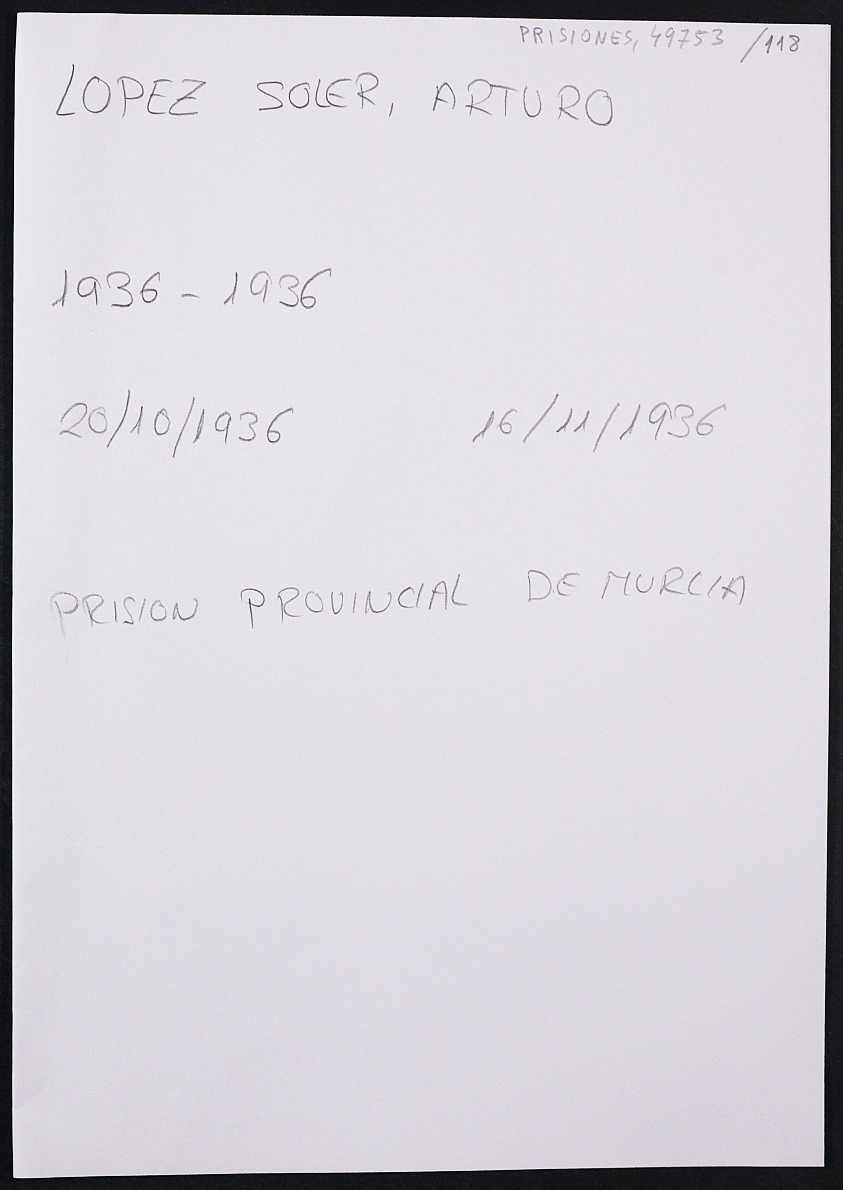 PRISIONES, 49753 /118
LOPEZ SOLER, ARTURO
1936 - 1936
20/10/1936 16/11/1936
PRISION PROVINCIAL DE MURCIA